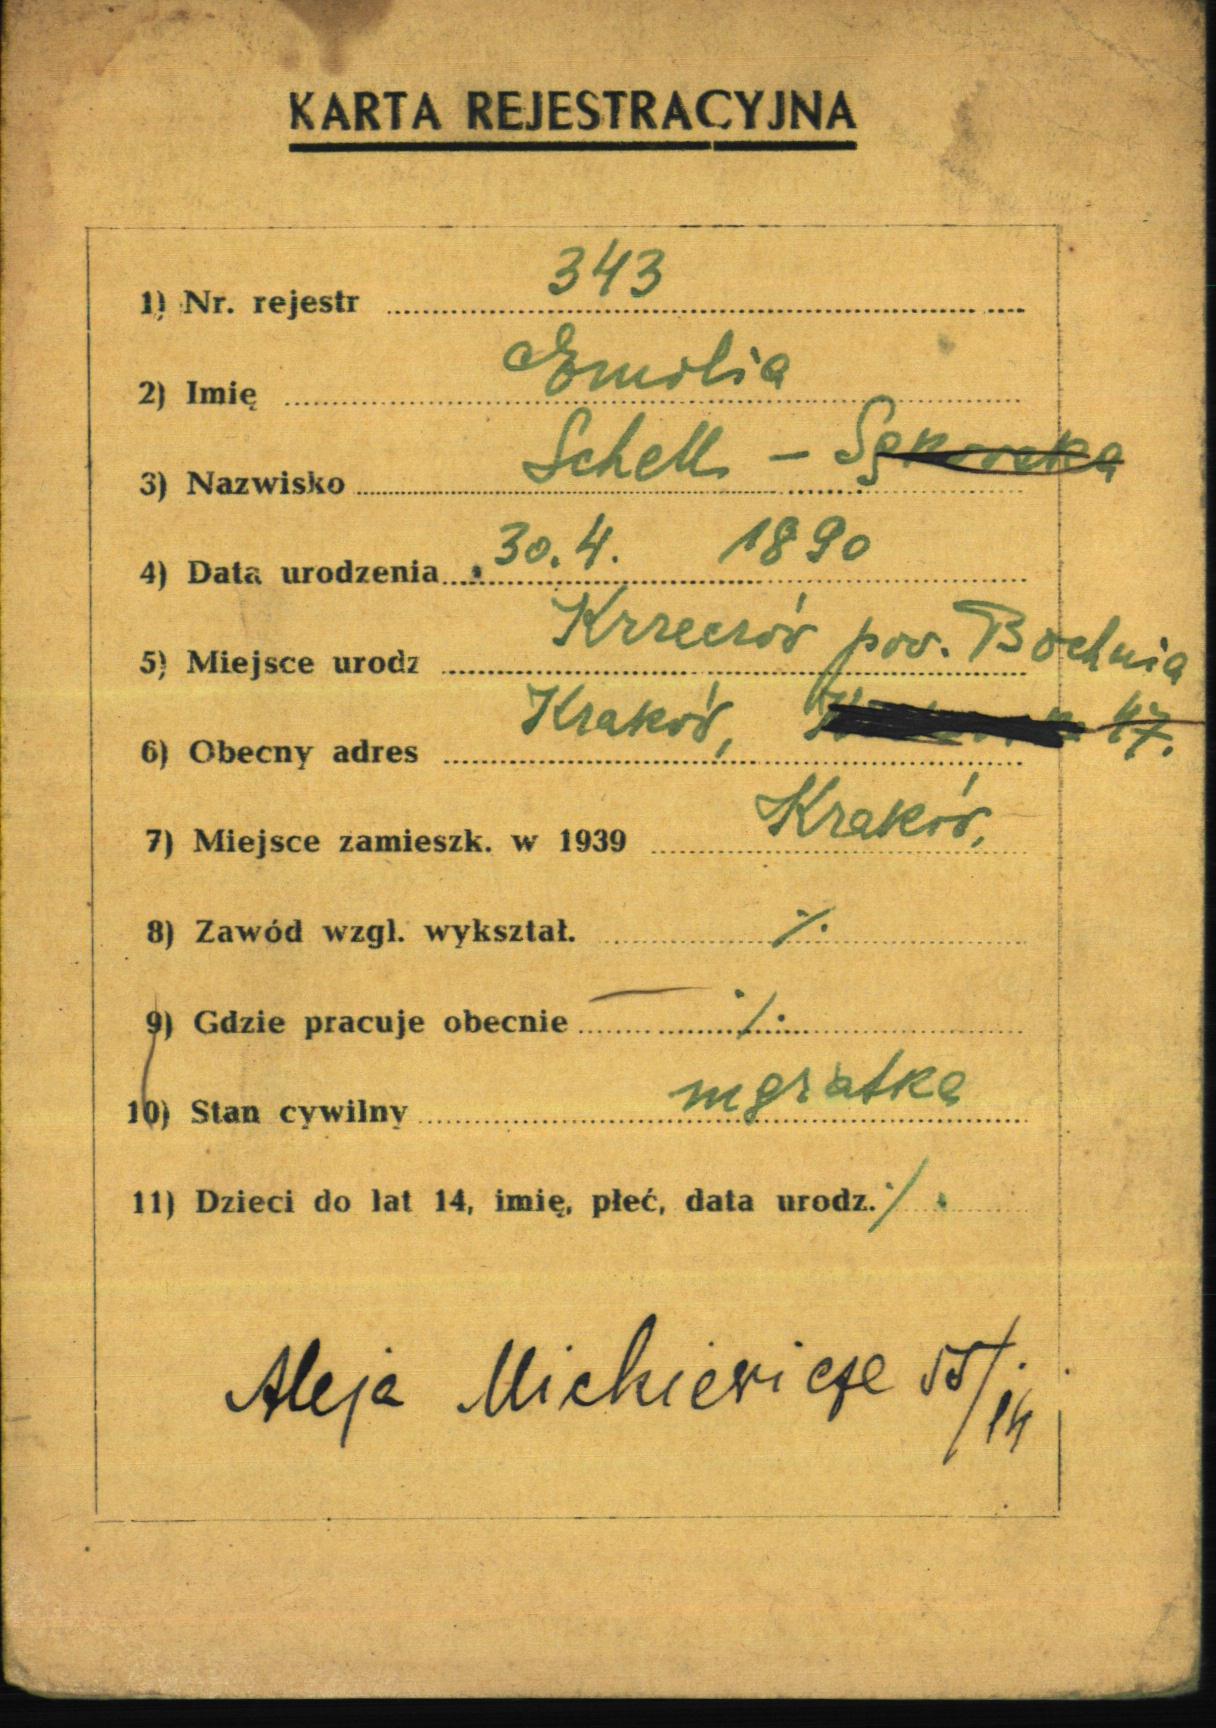 KARTA REJESTRACYJNA
1) Nr. rejestr 343
2) Imię Emilia
3) Nazwisko Schell -
4) Data urodzenia 30. 4. 1890
5) Miejsce urodz Krzeczów pow. Bochnia
6) Obecny adres Kraków, 47.
7) Miejsce zamieszk. w 1939 Kraków,
8) Zawód wzgl. wykształ. ./.
9) Gdzie pracuje obecnie ./.
10) Stan cywilny mężatka
11) Dzieci do lat 14, imię, płeć, data urodz. ./.
Aleja Mickiewicza 55/14